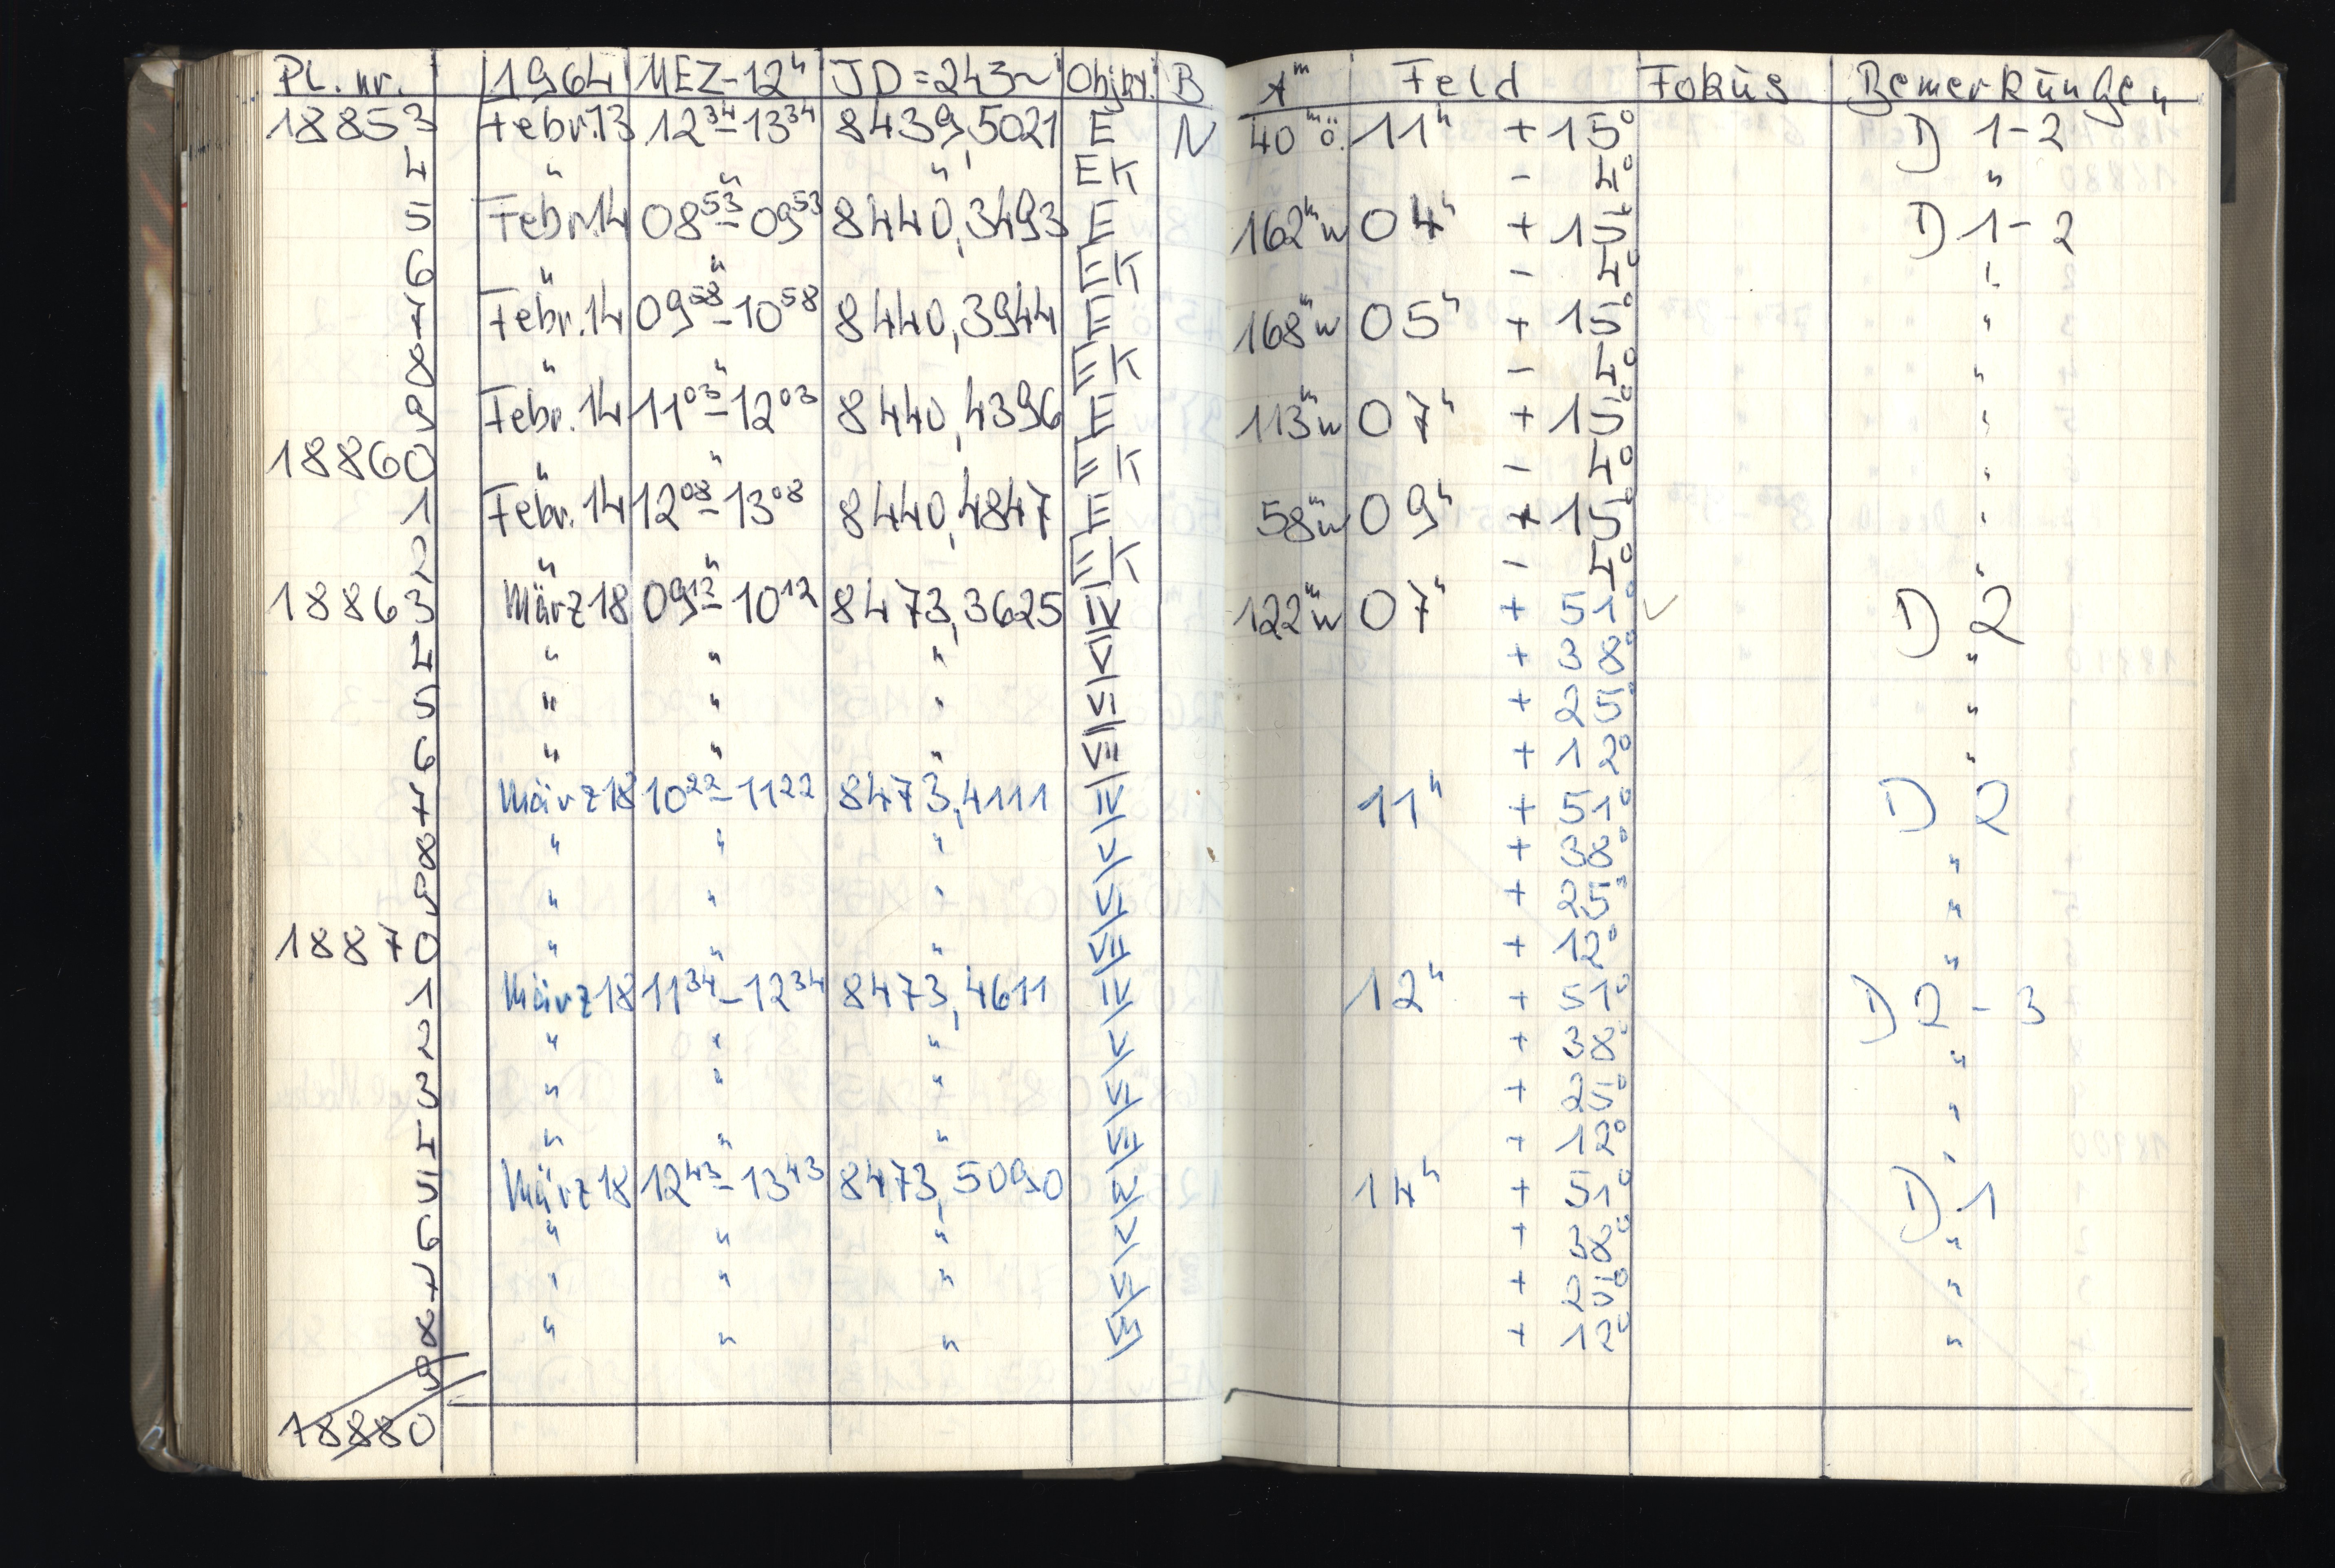 Pl. nr. 1964 MEZ-12ʰ JD=243~ Objkt. B Aᵐ Feld Fokus Bemerkungen
18853 Febr.13 12³⁴-13³⁴ 8439,5021 E N 40ᵐö. 11ʰ +15° 1-2
4 " " " EK -4° "
5 Febr.14 08⁵³-09⁵³ 8440,3493 E 162ᵐw 04ʰ +15° 1-2
6 " " EK -4° "
7 Febr.14 09⁵⁸-10⁵⁸ 8440,3944 E 168ᵐw 05ʰ +15° "
8 " " EK -4° "
9 Febr.14 11⁰³-12⁰³ 8440,4396 E 113ᵐw 07ʰ +15° "
18860 " " EK -4° "
1 Febr.14 12⁰⁸-13⁰⁸ 8440,4847 E 58ᵐw 09ʰ +15° "
2 " " EK -4° "
18863 März18 09¹²-10¹² 8473,3625 IV 122ᵐw 07ʰ +51° ✓ 2
4 " " " V +38° "
5 " " " VI +25° "
6 " " " VII +12° "
7 März18 10²²-11²² 8473,4111 IV 11ʰ +51° 2
8 " " " V +38° "
9 " " " VI +25° "
18870 " " " VII +12° "
1 März18 11³⁴-12³⁴ 8473,4611 IV 12ʰ +51° 2-3
2 " " " V +38° "
3 " " " VI +25° "
4 " " " VII +12° "
5 März18 12⁴³-13⁴³ 8473,5090 IV 14ʰ +51° 1
6 " " " V +38° "
7 " " " VI +25° "
8 " " " VII +12° "
9
18880